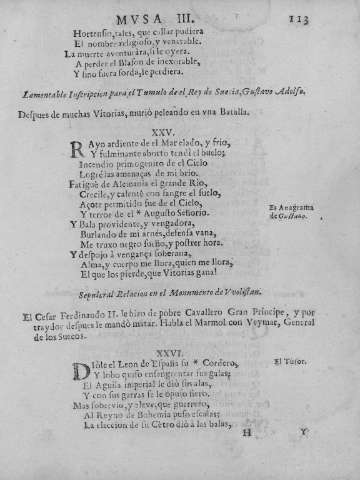 MVSA III. 113
Hortensio, tales, que callar pudiera
El nombre religioso, y venerable.
La muerte aventurára, si le oyera.
A perder el Blason de inexorable,
Y sino fuera sorda, le perdiera.
Lamentable Inscripcion para el Tumulo de el Rey de Suecia, Gustavo Adolfo.
Despues de muchas Vitorias, murió peleando en vna Batalla.
XXV.
RAyo ardiente de el Mar elado, y frio,
Y fulminante aborto tendi el buelo;
Incendio primogenito de el Cielo
Logré las amenaças de mi brio.
Fatiguè de Alemania el grande Rio,
Crecile, y calentè con sangre el suelo,
Açote permitido fue de el Cielo,
Y terror de el * Augusto Señorio.
Es Anagrama
de Gustavo.
Y Bala providente, y vengadora,
Burlando de mi arnés, defensa vana,
Me truxo negro sueño, y postrer hora.
Y despojò à vengança soberana,
Alma, y cuerpo me llora, quien me llora,
El que los pierde, que Vitorias gana!
Sepulcral Relacion en el Monumento de Vvolistan.
El Cesar Ferdinando II. le hizo de pobre Cavallero Gran Principe, y por
traydor despues le mandò matar. Habla el Marmol con Veymar, General
de los Suecos.
XXVI.
DIòle el Leon de España su * Cordero,
El Tuson.
Y lobo quiso ensangrentar sus galas;
El Aguila imperial le diò sus alas,
Y con sus garras se le opuso fiero.
Mas sobervio, y aleve, que guerrero,
Al Reyno de Bohemia puso escalas;
La eleccion de su Cetro diò à las balas,
H Y